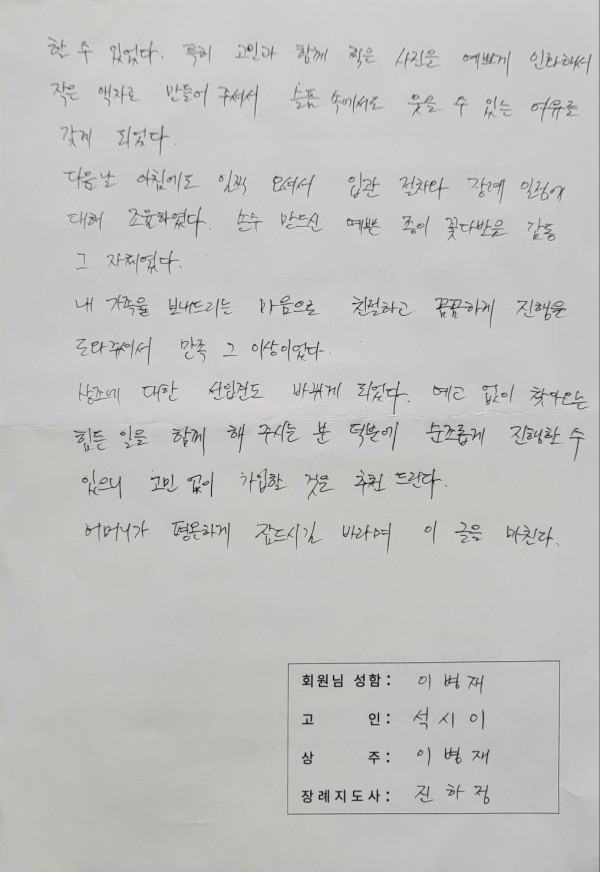 한 수 있었다. 특히 고인과 함께 찍은 사진을 예쁘게 인화해서
작은 액자로 만들어 주셔서 슬픔 속에서도 웃을 수 있는 여유를
갖게 되었다.
다음날 아침에도 일찍 오셔서 입관 절차와 장례 일정에
대해 조율하였다. 손수 만드신 예쁜 종이 꽃다발은 감동
그 자체였다.
내 가족을 보내드리는 마음으로 친절하고 꼼꼼하게 진행을
도와주셔서 만족 그 이상이었다.
상조에 대한 선입견도 바뀌게 되었다. 예고 없이 찾아오는
힘든 일을 함께 해 주시는 분 덕분에 순조롭게 진행한 수
있으니 고민 없이 가입할 것을 추천 드린다.
어머니가 평온하게 잠드시길 바라며 이 글을 마친다.
회원님 성함: 이병재
고 인: 석시이
상 주: 이병재
장례지도사: 진하정